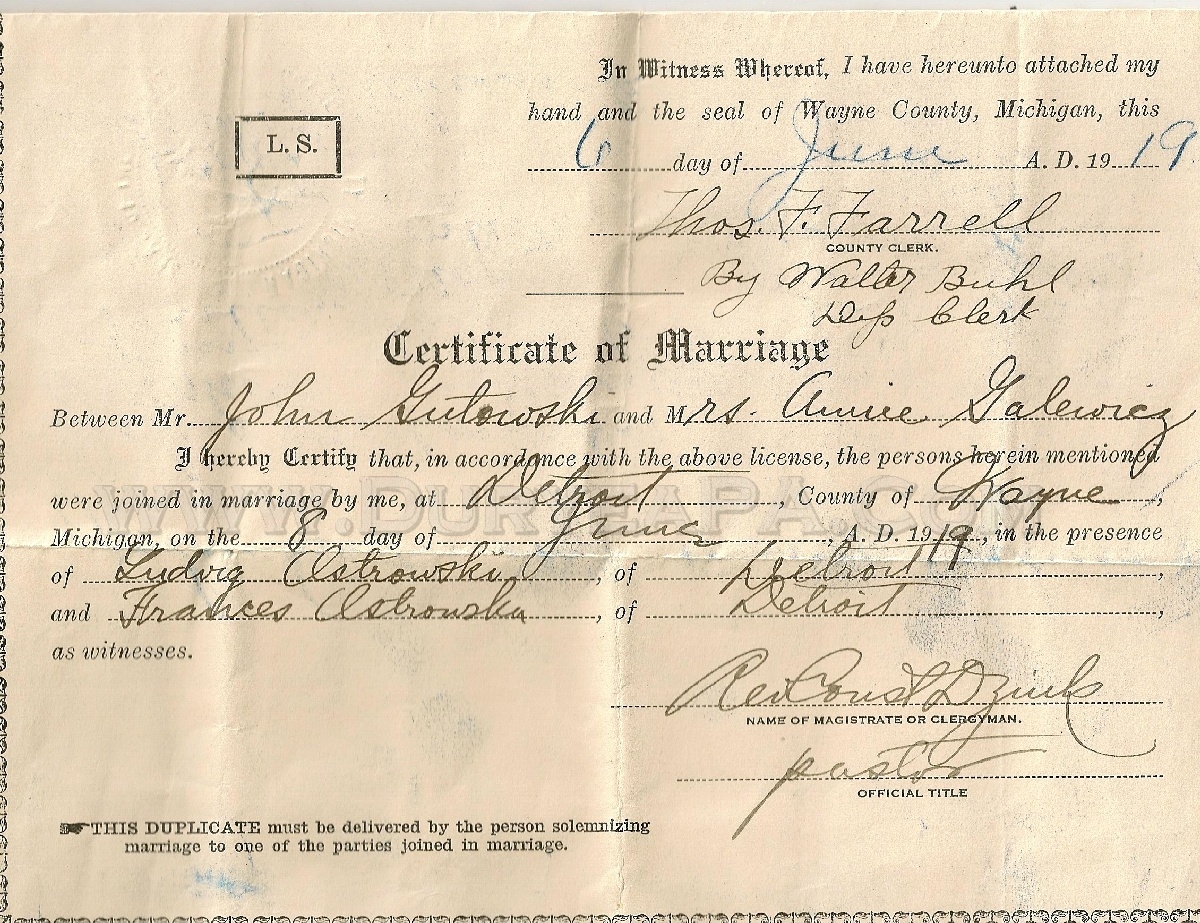 In Witness Whereof, I have hereunto attached my
hand and the seal of Wayne County, Michigan, this
6 day of June A. D. 19 19
L. S.
Thos. F. Farrell
COUNTY CLERK.
By Walter Buhl
Dep Clerk
Certificate of Marriage
Between Mr. John Gutowski and Mrs. Annie Galewicz
I hereby Certify that, in accordance with the above license, the persons herein mentioned
were joined in marriage by me, at Detroit, County of Wayne,
Michigan, on the 8 day of June, A. D. 1919, in the presence
of Ludwig Ostrowski, of Detroit,
and Frances Ostrowska, of Detroit,
as witnesses.
Rev Const Dziuk
NAME OF MAGISTRATE OR CLERGYMAN.
pastor
OFFICIAL TITLE
THIS DUPLICATE must be delivered by the person solemnizing
marriage to one of the parties joined in marriage.